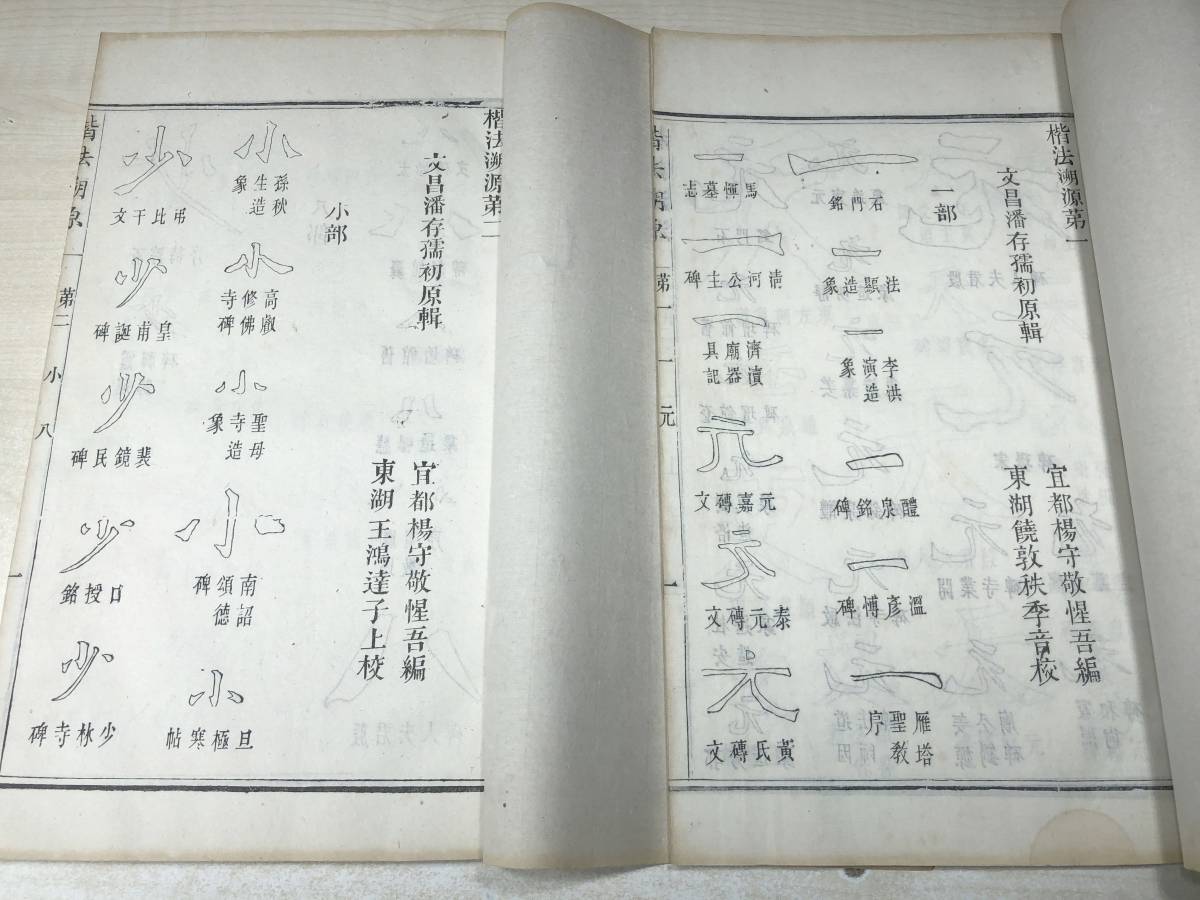 楷法溯源第一
文昌潘存孺初原輯
宜都楊守敬惺吾編
東湖饒敦秩季音校
一部
一
石門銘
一
法顯造象
一
李洪演造象
一
醴泉銘碑
一
溫彥博碑
一
雁塔聖教序
一
馬惲墓志
一
清河公主碑
一
濟瀆廟器具記
元
元嘉磚文
元
泰元磚文
元
黃氏磚文
楷法溯源 第一 一 元 一
楷法溯源第二
文昌潘存孺初原輯
宜都楊守敬惺吾編
東湖王鴻達子上校
小部
小
孫秋生造象
小
高叡修佛寺碑
小
聖母寺造象
小
南詔德頌碑
小
旦極寒帖
少
弔比干文
少
皇甫誕碑
少
裴鏡民碑
少
口授銘
少
少林寺碑
楷法溯源 第二 小 八 一